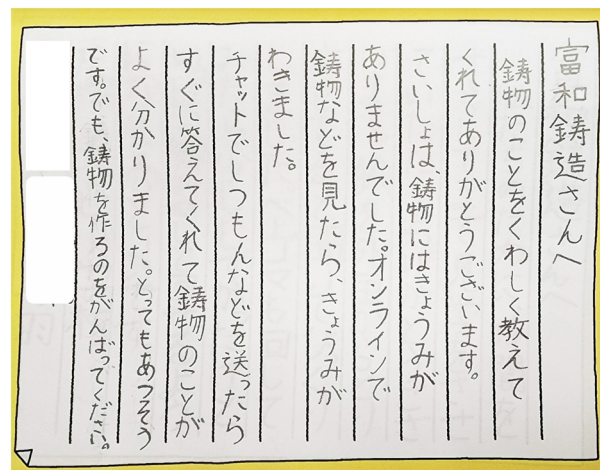 富和鋳造さんへ
鋳物のことをくわしく教えて
くれてありがとうございます。
さいしょは、鋳物にはきょうみが
ありませんでした。オンラインで
鋳物などを見たら、きょうみが
わきました。
チャットでしつもんなどを送ったら
すぐに答えてくれて鋳物のことが
よく分かりました。とってもあつそう
です。でも、鋳物を作るのをがんばってください。